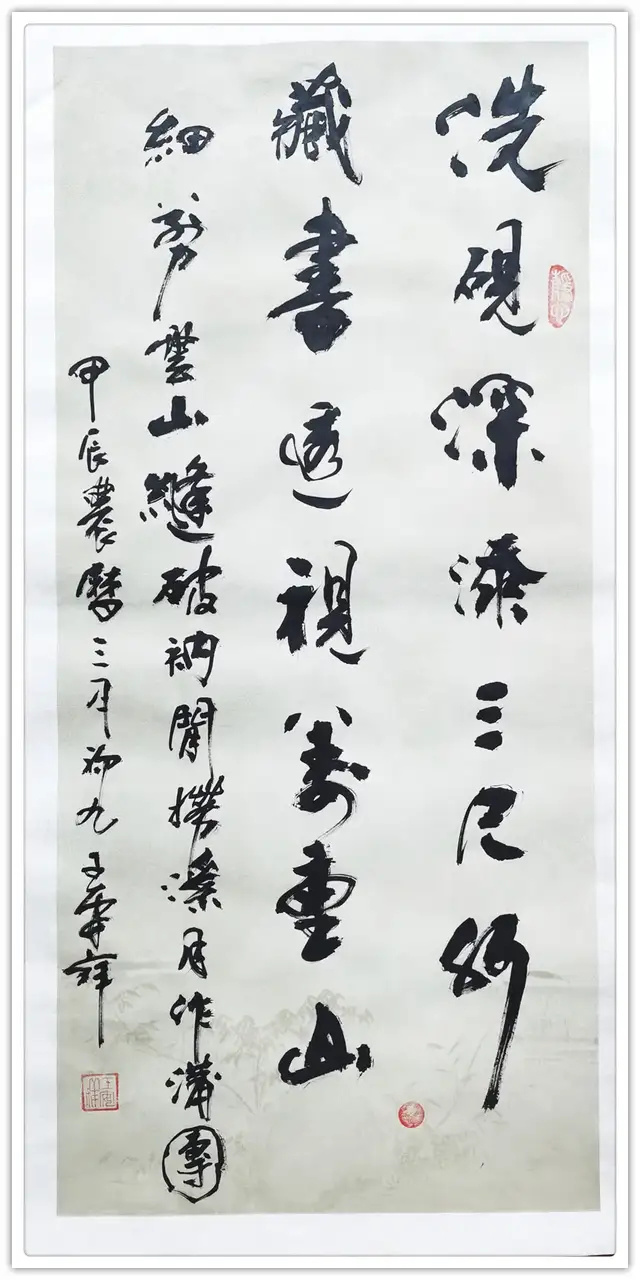 洗硯深添三尺
藏書透視萬重山
細剪雲山縫破衲閒撈溪月作蒲團
甲辰農曆三月初九